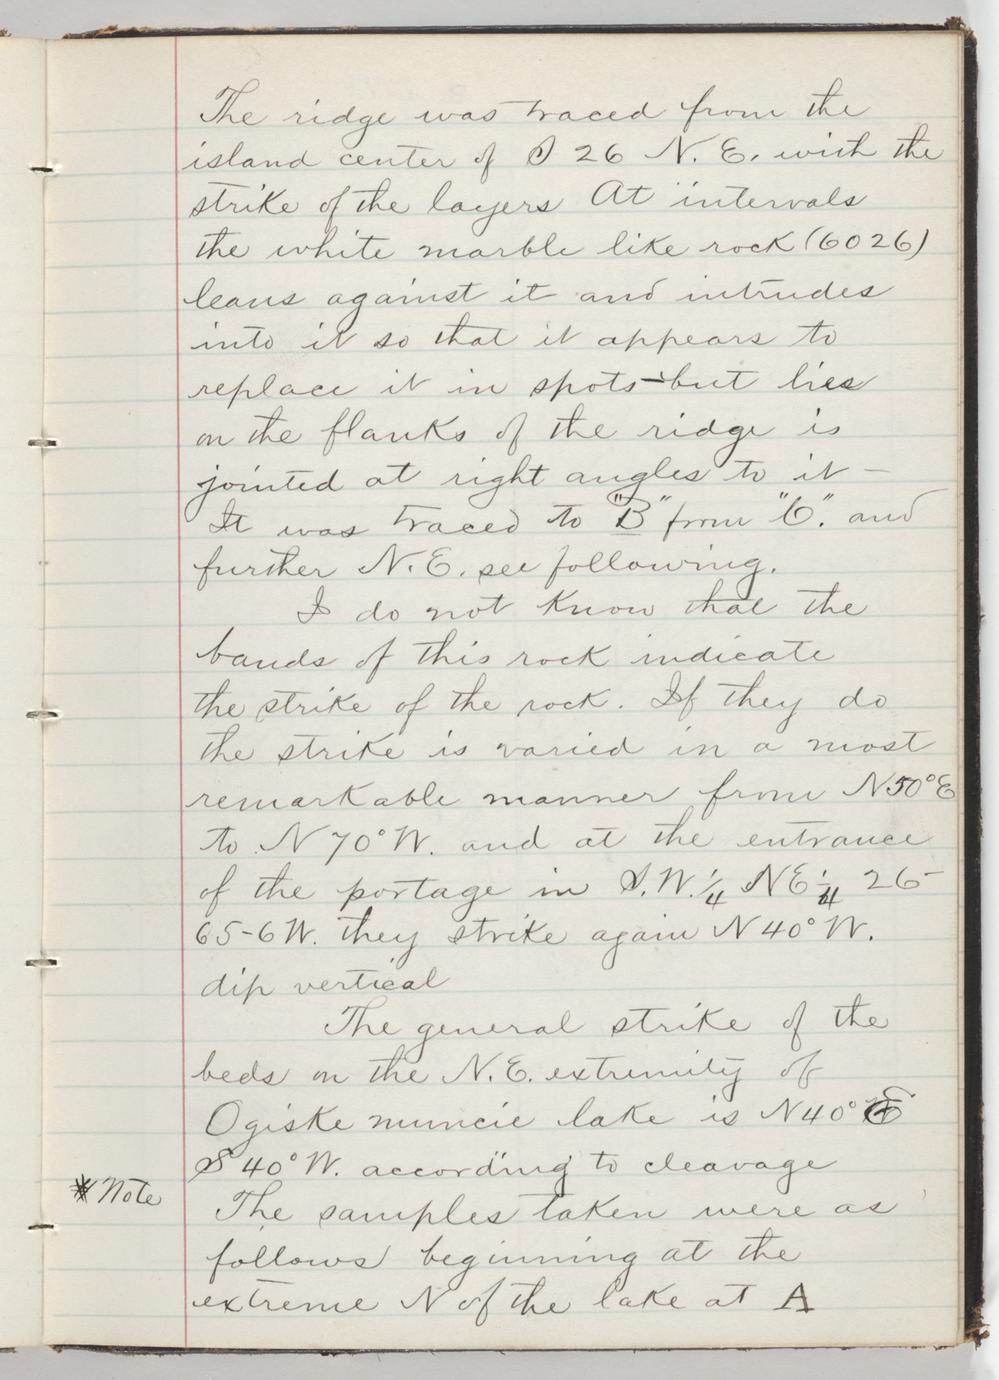 The ridge was traced from the
island center of S 26 N. E. with the
strike of the layers At intervals
the white marble like rock (6026)
leans against it and intrudes
into it so that it appears to
replace it in spots - but lies
on the flanks of the ridge is
jointed at right angles to it -
It was traced to "B" from "C". and
further N.E. see following.
I do not know that the
bands of this rock indicate
the strike of the rock. If they do
the strike is varied in a most
remarkable manner from N50°E
to N 70° W. and at the entrance
of the portage in S.W. 1/4 NE 1/4 26-
65-6W. they strike again N 40° W.
dip vertical
The general strike of the
beds on the N.E. extremity of
Ogiske muncie lake is N40° E
S 40° W. according to cleavage
* Note
The samples taken were as
follows beginning at the
extreme N of the lake at A